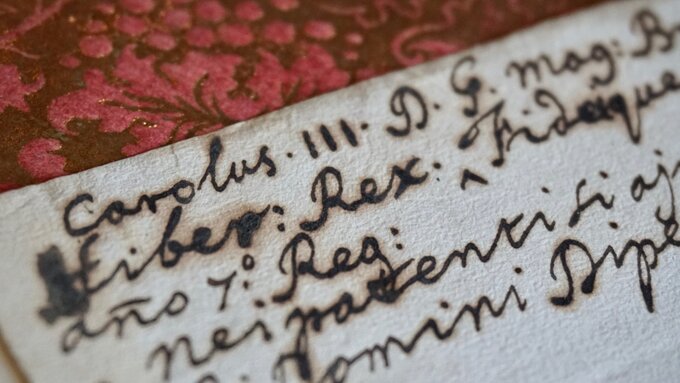 Carolus. III. D. G. mag: B
Hiber: Rex: Fidáque
año 7.º Reg:
nei patenti si aj
Domini Dipě